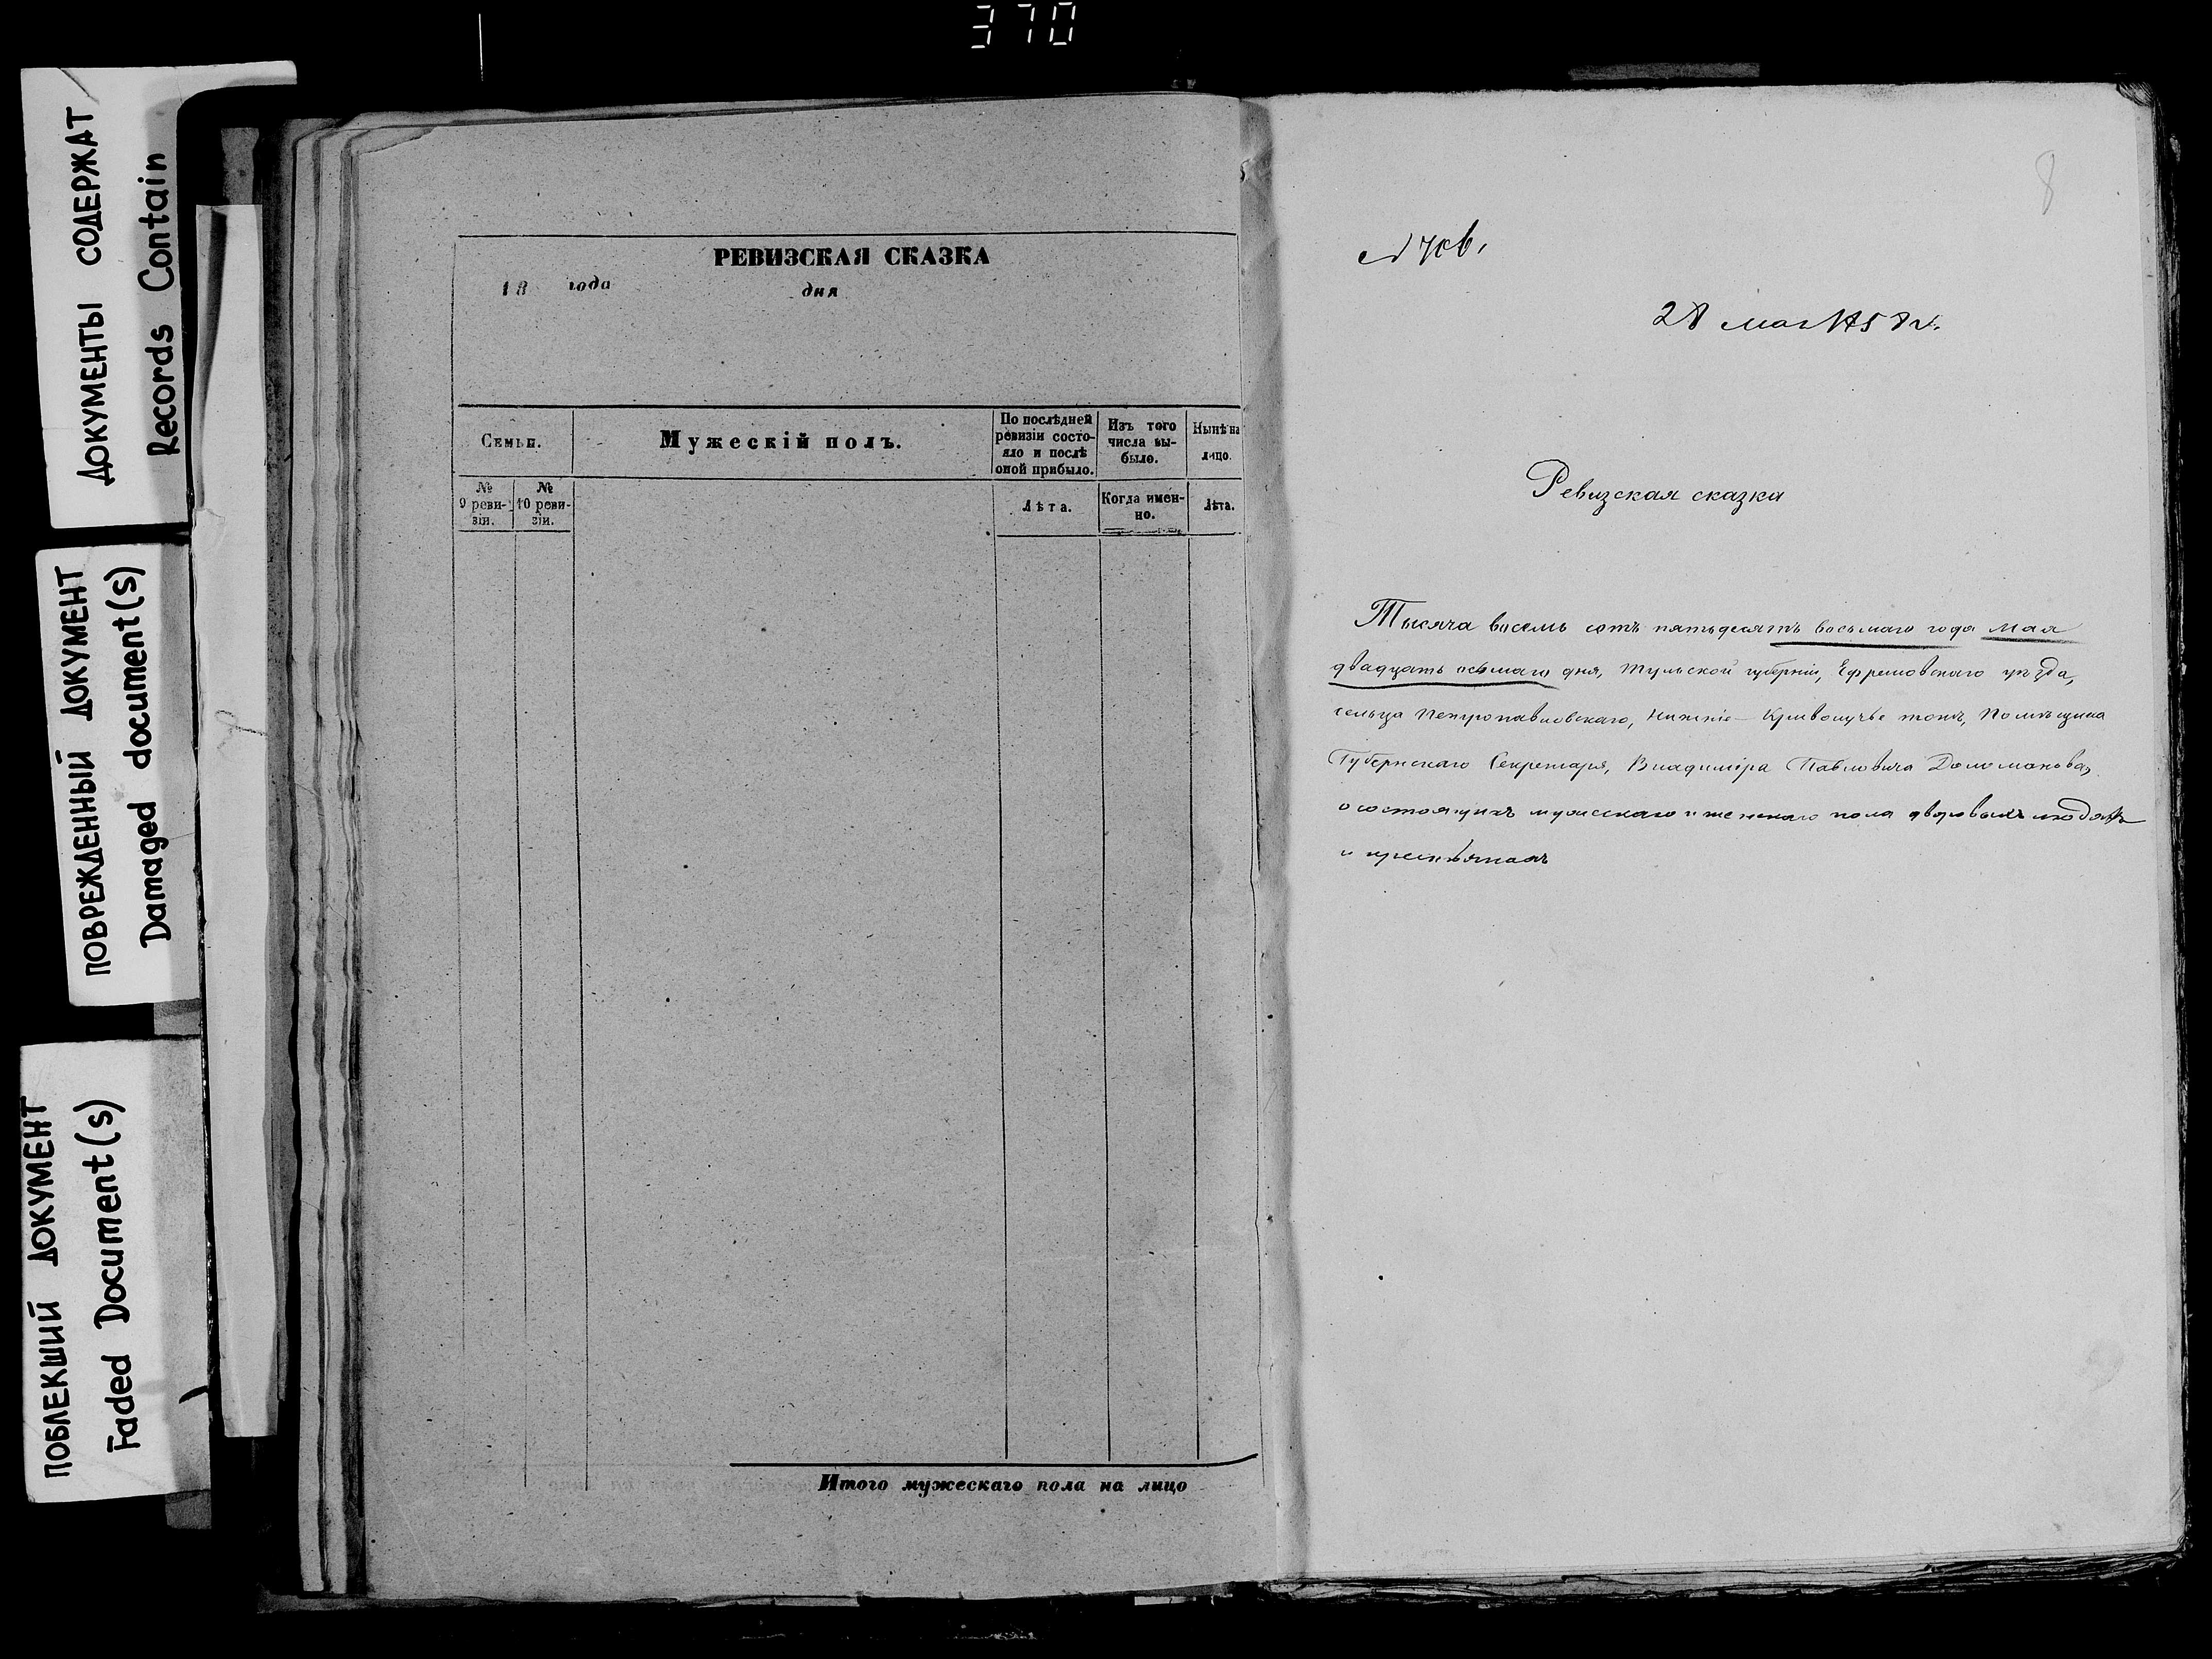 370
ДОКУМЕНТЫ СОДЕРЖАТ
Records Contain
ПОВРЕЖДЕННЫЙ ДОКУМЕНТ
Damaged document(s)
ПОБЛЕКШИЙ ДОКУМЕНТ
Faded Document(s)
РЕВИЗСКАЯ СКАЗКА
18 года дня
Семьи.
Мужескій полъ.
По послѣдней
ревизіи состо-
яло и послѣ
оной прибыло.
Изъ того
числа вы-
было.
Нынѣ на
лицо.
№
9 реви-
зіи.
№
10 реви-
зіи.
Лѣта.
Когда имен-
но.
Лѣта.
Итого мужескаго пола на лицо
8
28 мая 1858 г.
Ревизская сказка
Тысяча восемь сотъ пятьдесятъ восьмаго года мая
двадцать осьмаго дня, Тульской губерніи, Ефремовскаго уѣзда,
сельца Петропавловскаго, Нижніе-Криволучье тожъ, Помѣщика
Губернскаго Секретаря, Владиміра Павловича Доломанова,
о состоящихъ мужескаго и женскаго пола дворовыхъ людяхъ
и крестьянахъ